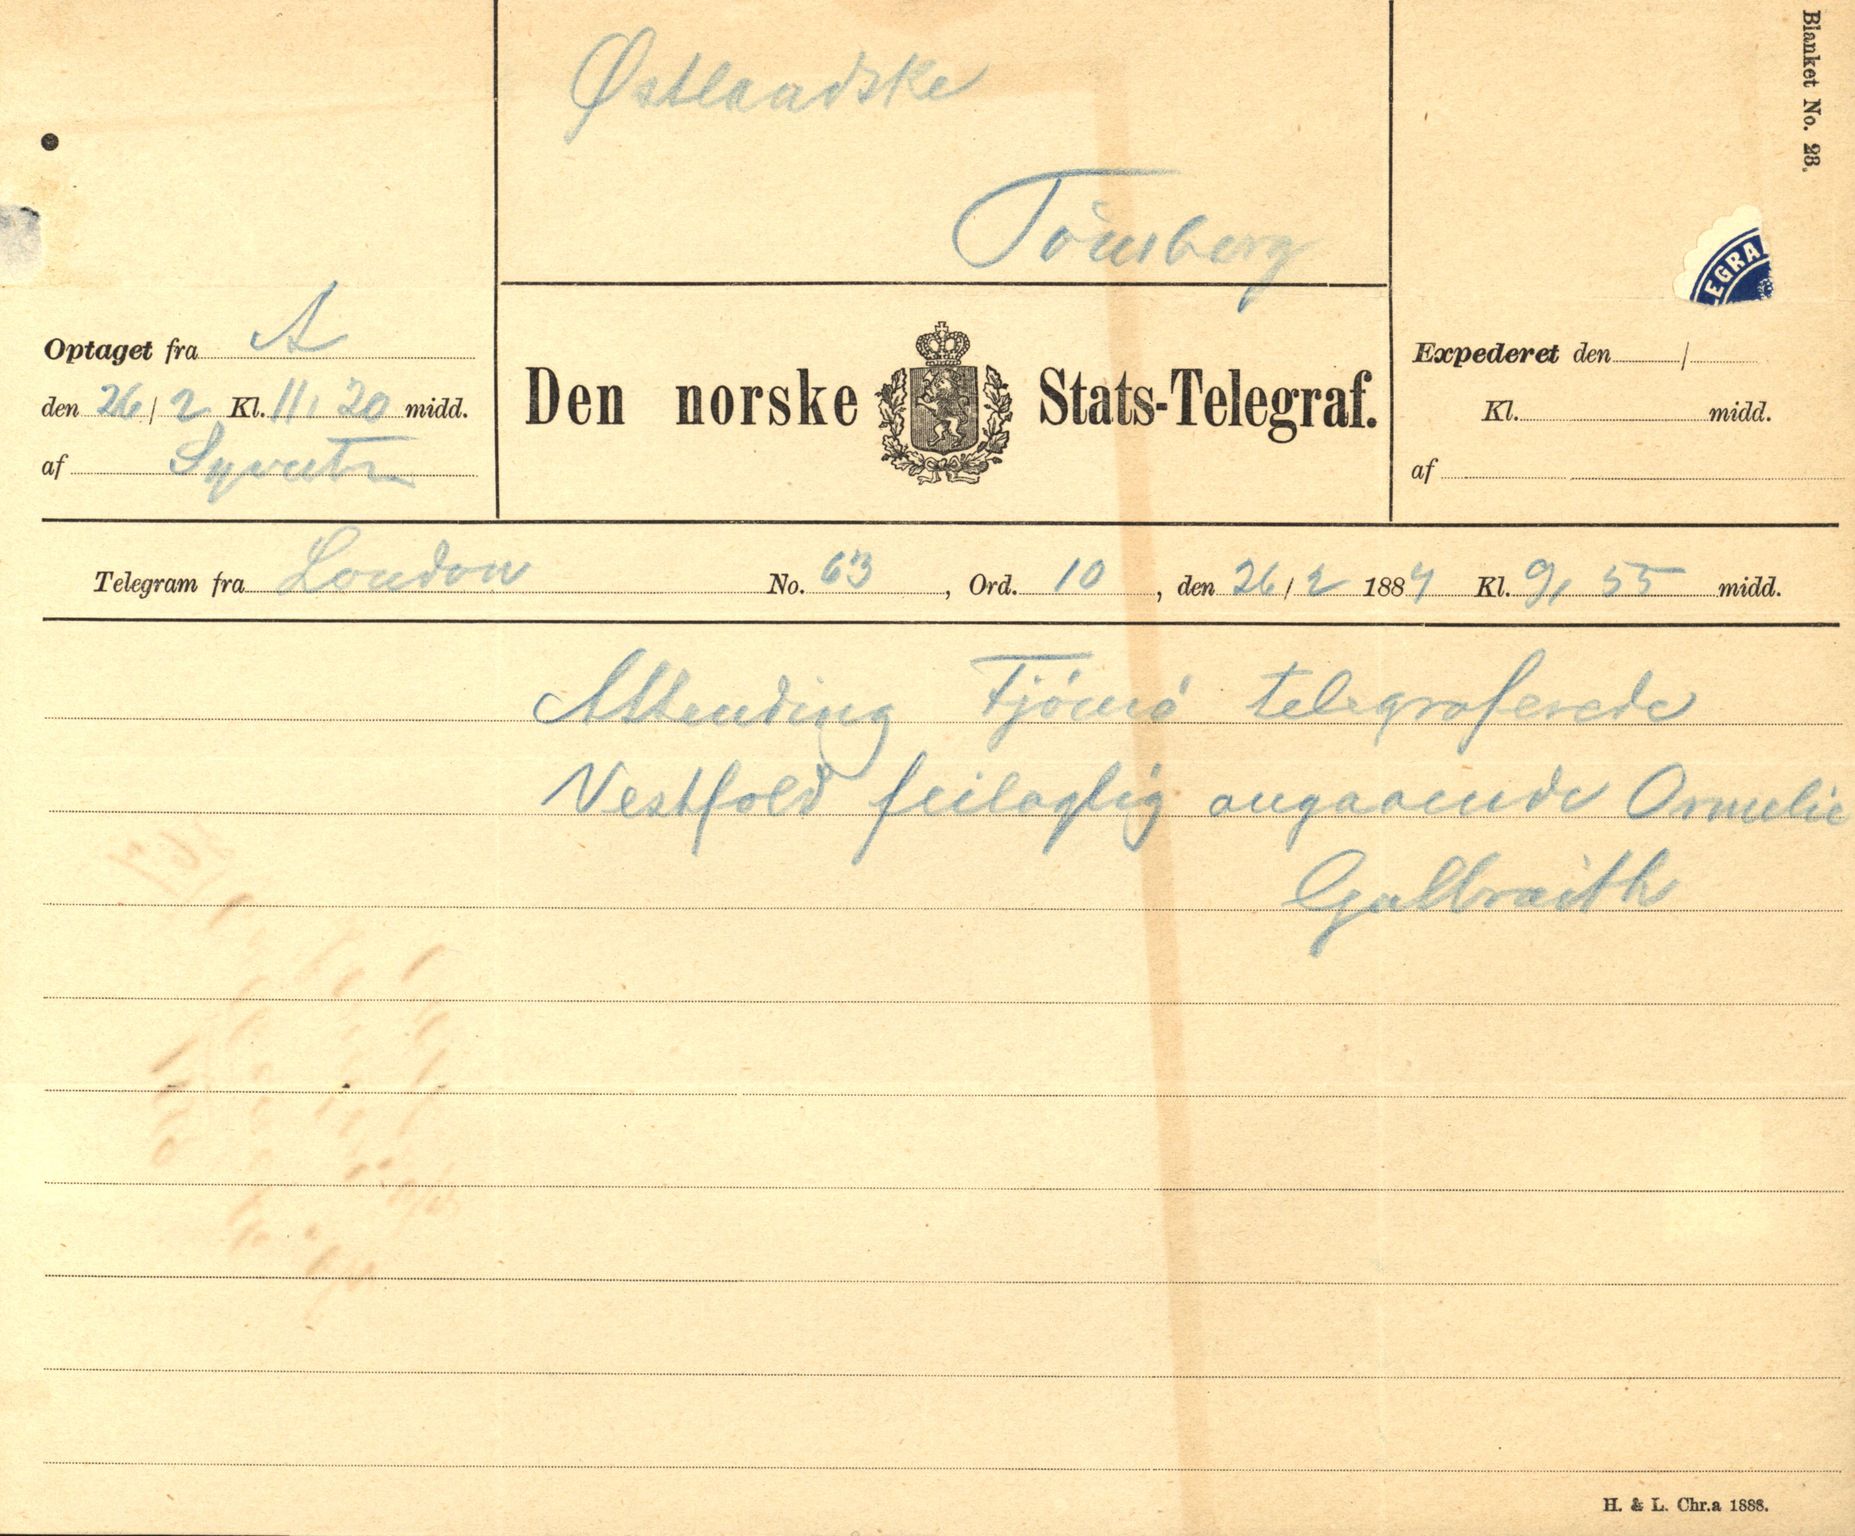 Blanket No. 23.
Østlandske
Tönsberg
EGRA
Optaget fra A
den 26/2 Kl. 11,20 midd.
af
Den norske Stats-Telegraf.
Expederet den /
Kl. midd.
af
Telegram fra London No. 63, Ord. 10, den 26/2 1889 Kl. 9,55 midd.
Attending Tjömö telegraferede
Vestfold feilagtig angaaende Ormelie
Galbraith
H. & L. Chr.a 1888.